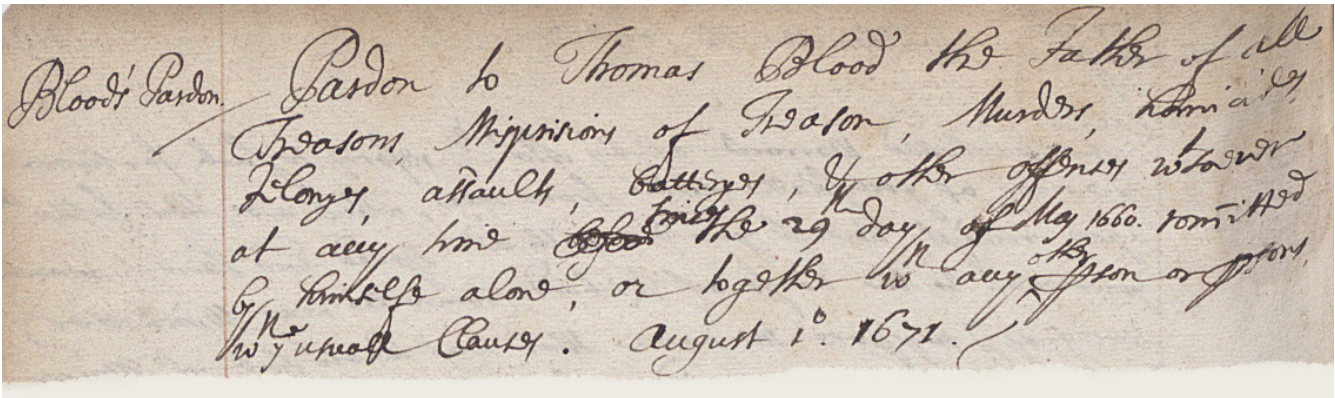 Bloods Pardon.
Pardon to Thomas Blood the Father of all
Treasons, Misprisions of Treason, Murders, homicides,
Felonyes, assaults, batteryes, & other offenses wtsoever
at any time before since the 29th day of May 1660. comitted
by himselfe alone, or together wth any other pson or psons,
wth ye usuall Clauses. August 1o. 1671.